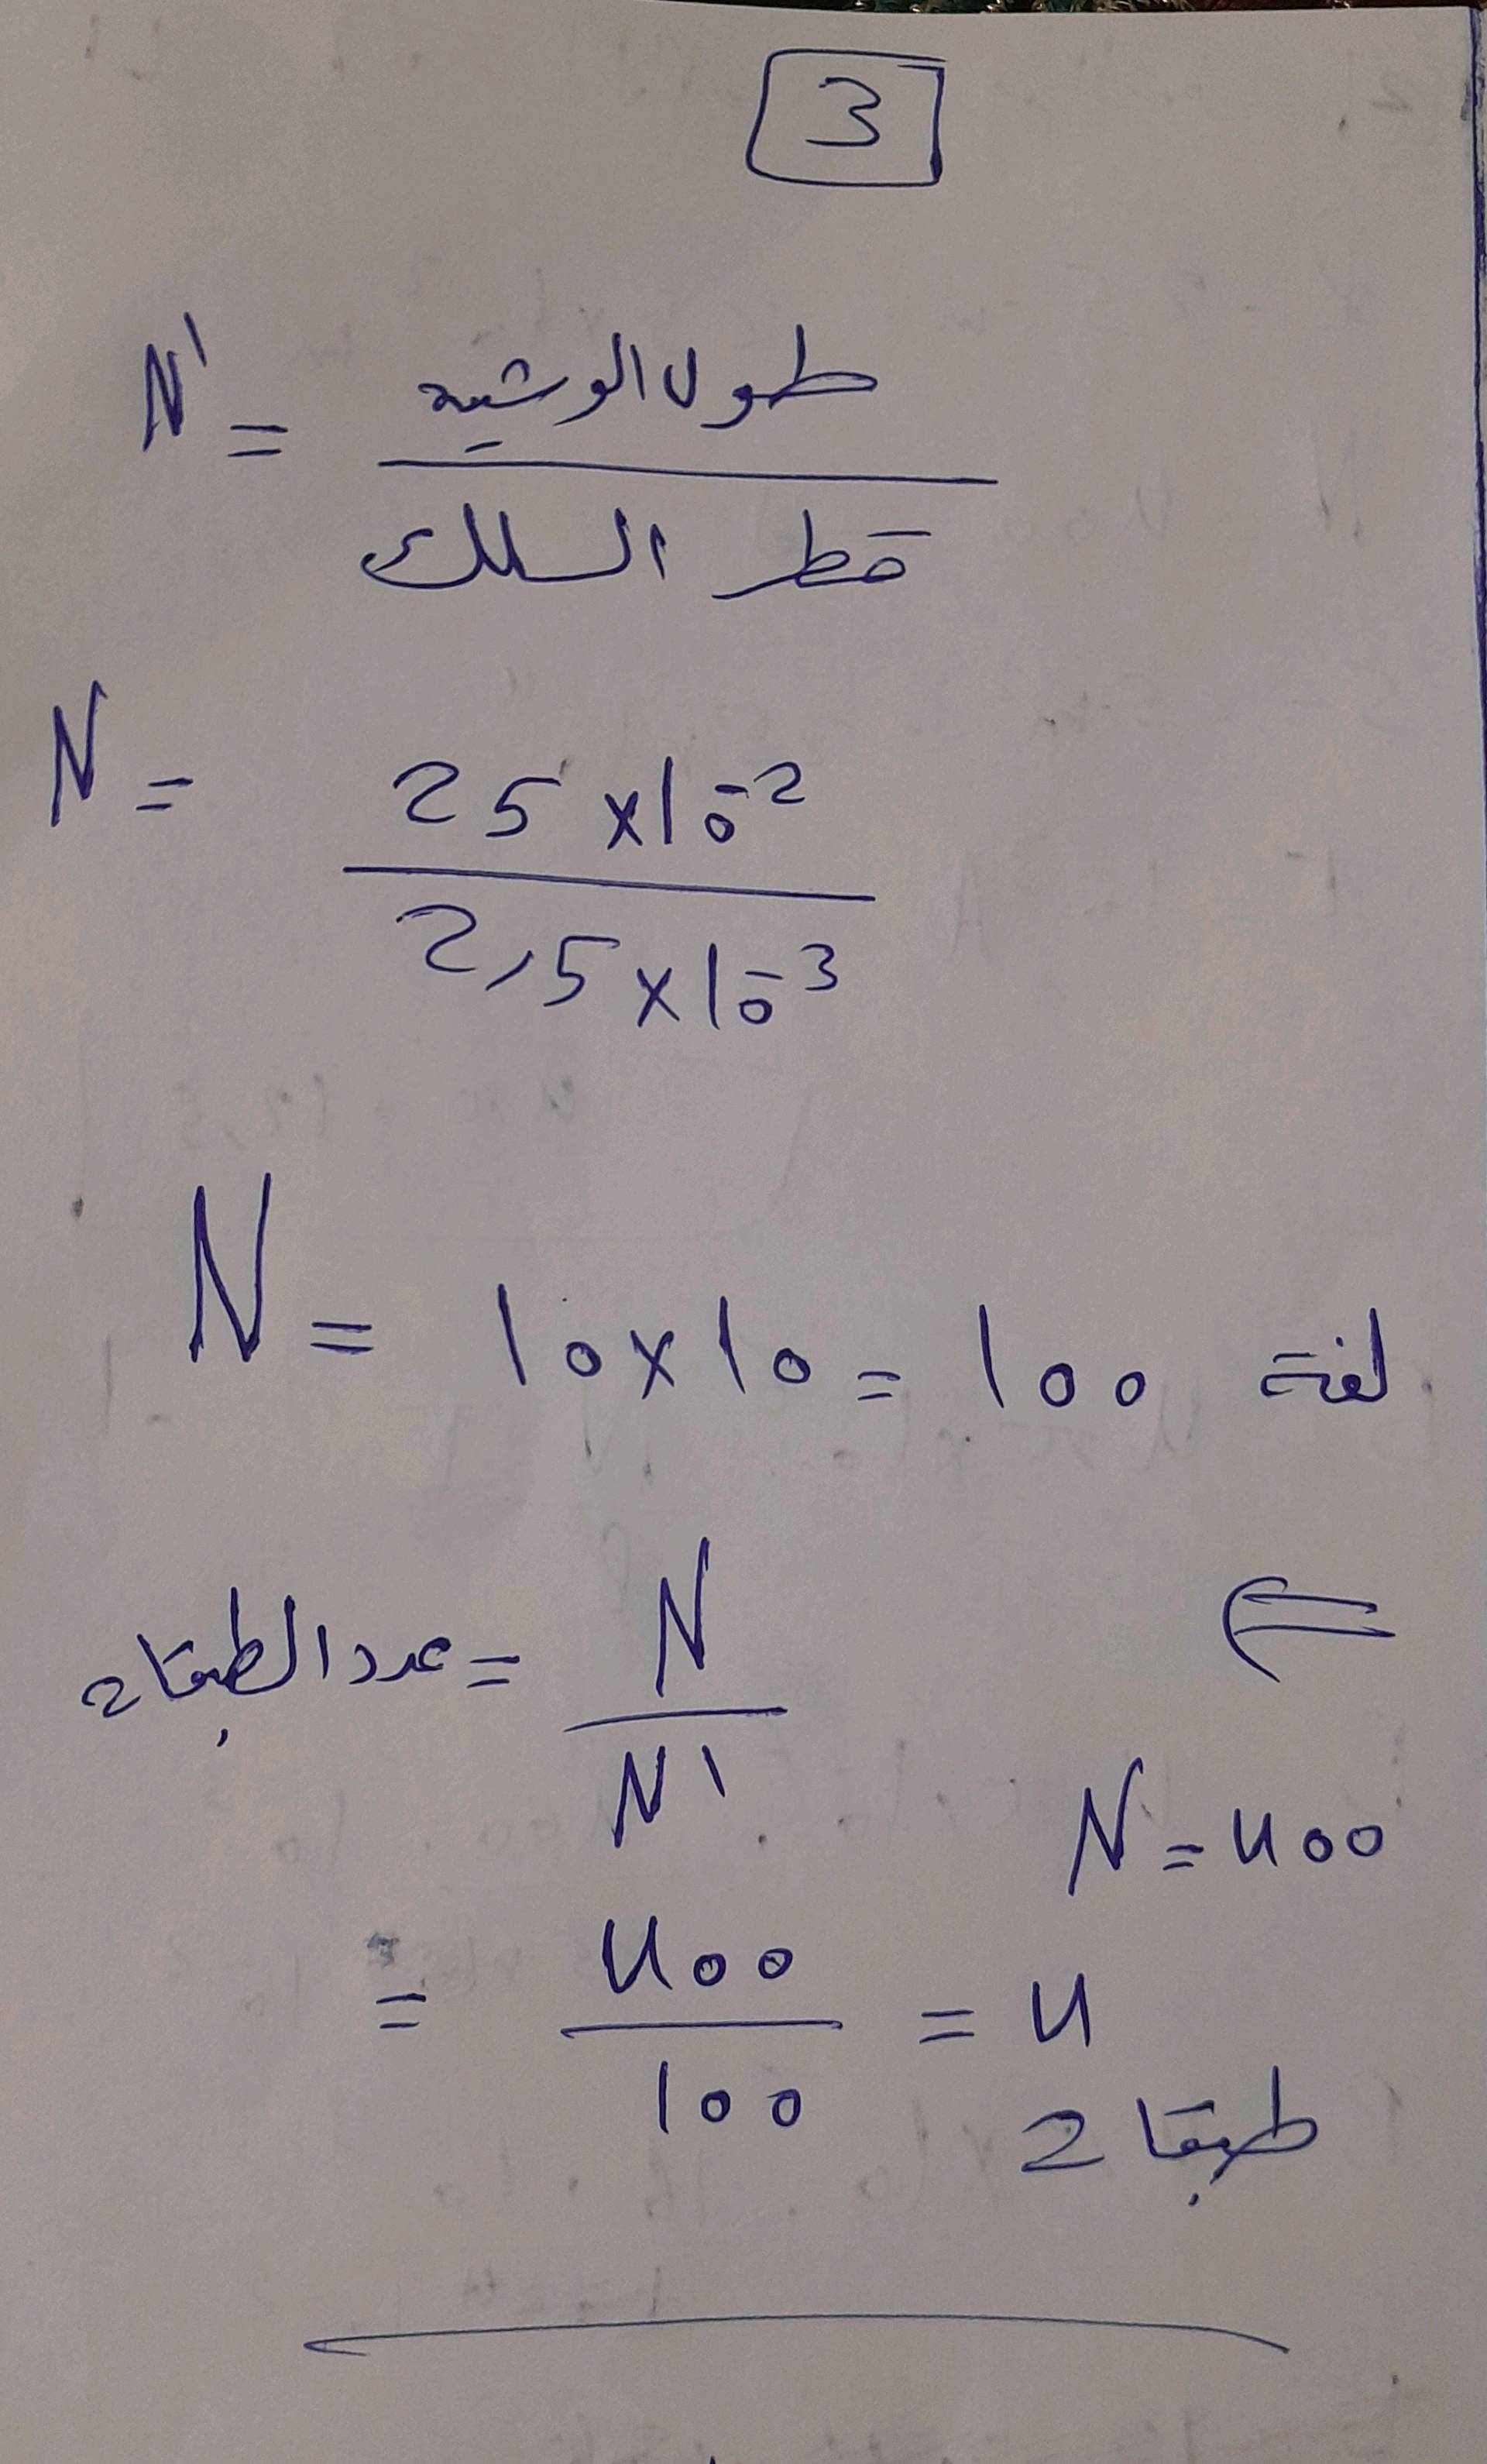 3
N' = طول الوشيعة / قطر السلك
N = 25 × 10⁻² / 2,5 × 10⁻³
N = 10 × 10 = 100 لفة
عدد الطبقات = N / N'
⇐
N = 400
= 400 / 100 = 4
طبقات